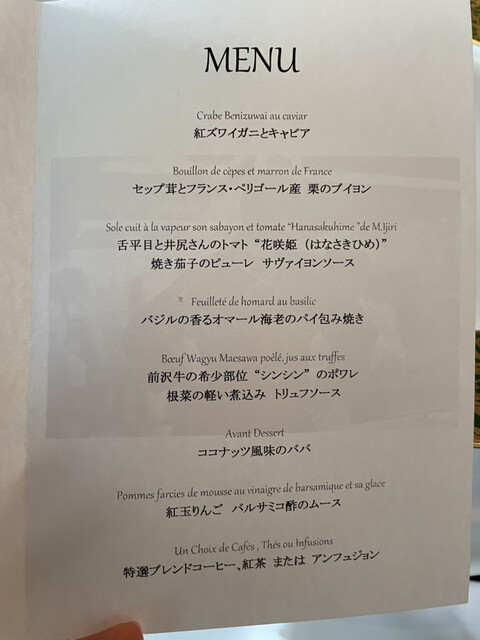 MENU
Crabe Benizuwai au caviar
紅ズワイガニとキャビア
Bouillon de cèpes et marron de France
セップ茸とフランス・ペリゴール産 栗のブイヨン
Sole cuit à la vapeur son sabayon et tomate “Hanasakuhime ”de M.Ijiri
舌平目と井尻さんのトマト “花咲姫 （はなさきひめ）”
焼き茄子のピューレ サヴァイヨンソース
Feuilleté de homard au basilic
バジルの香るオマール海老のパイ包み焼き
Bœuf Wagyu Maesawa poêlé, jus aux truffes
前沢牛の希少部位 “シンシン” のポワレ
根菜の軽い煮込み トリュフソース
Avant Dessert
ココナッツ風味のババ
Pommes farcies de mousse au vinaigre de barsamique et sa glace
紅玉りんご バルサミコ酢のムース
Un Choix de Cafés , Thés ou Infusions
特選ブレンドコーヒー、紅茶 または アンフュジョン